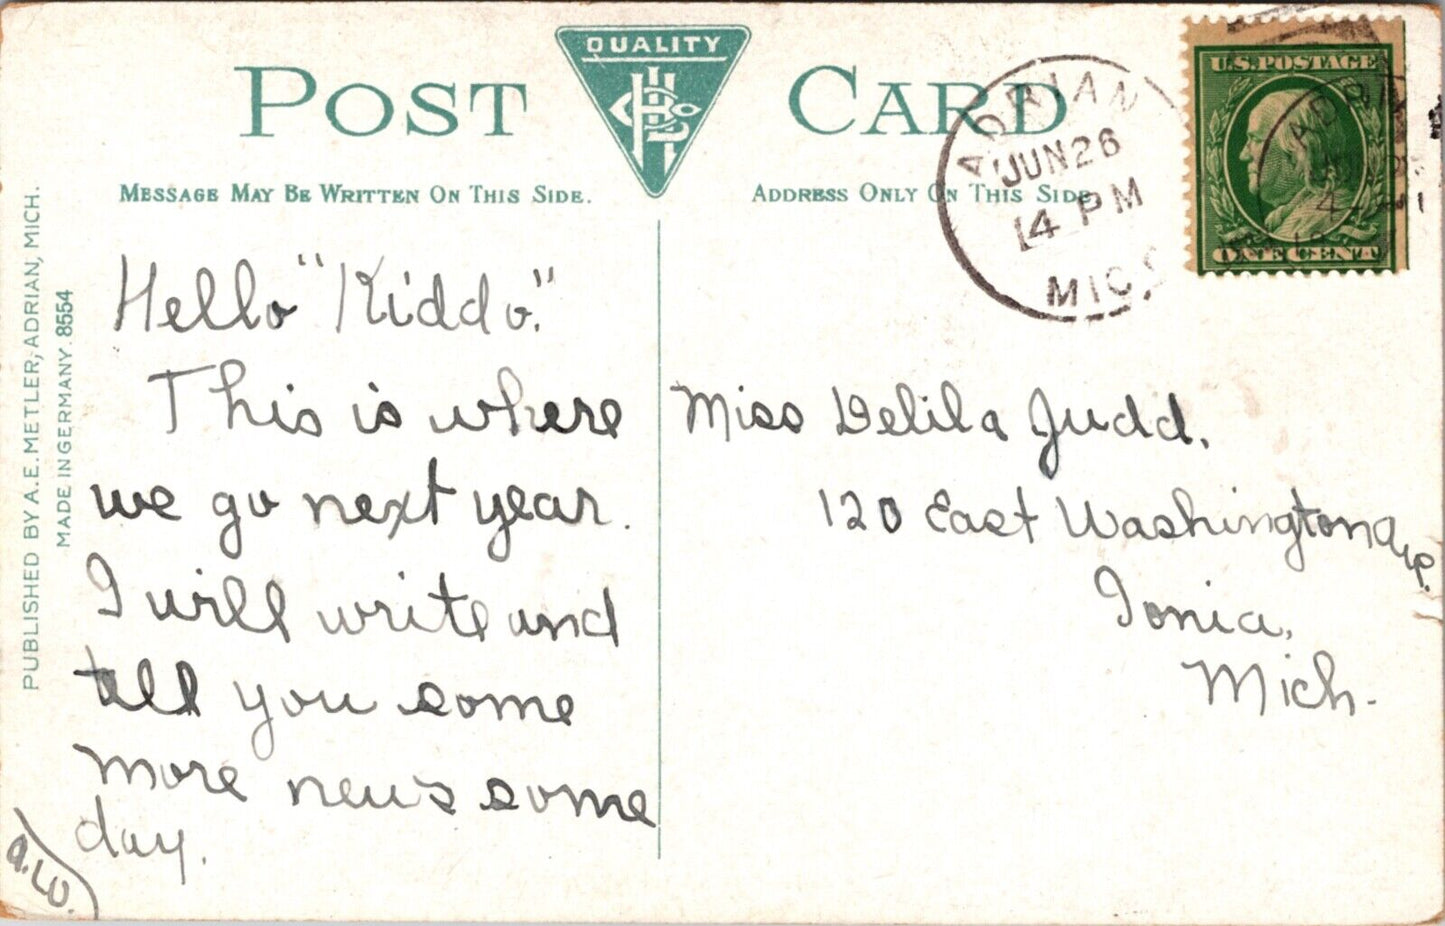 QUALITY
POST CARD
MESSAGE MAY BE WRITTEN ON THIS SIDE.
ADDRESS ONLY ON THIS SIDE.
ADRIAN
JUN 26
4 PM
MICH
U.S. POSTAGE
ONE CENT
PUBLISHED BY A. E. METLER, ADRIAN, MICH.
MADE IN GERMANY. 8554
Hello "Kiddo."
This is where
we go next year.
I will write and
tell you some
more news some
day.
Miss Delila Judd,
120 East Washington
Ionia,
Mich.